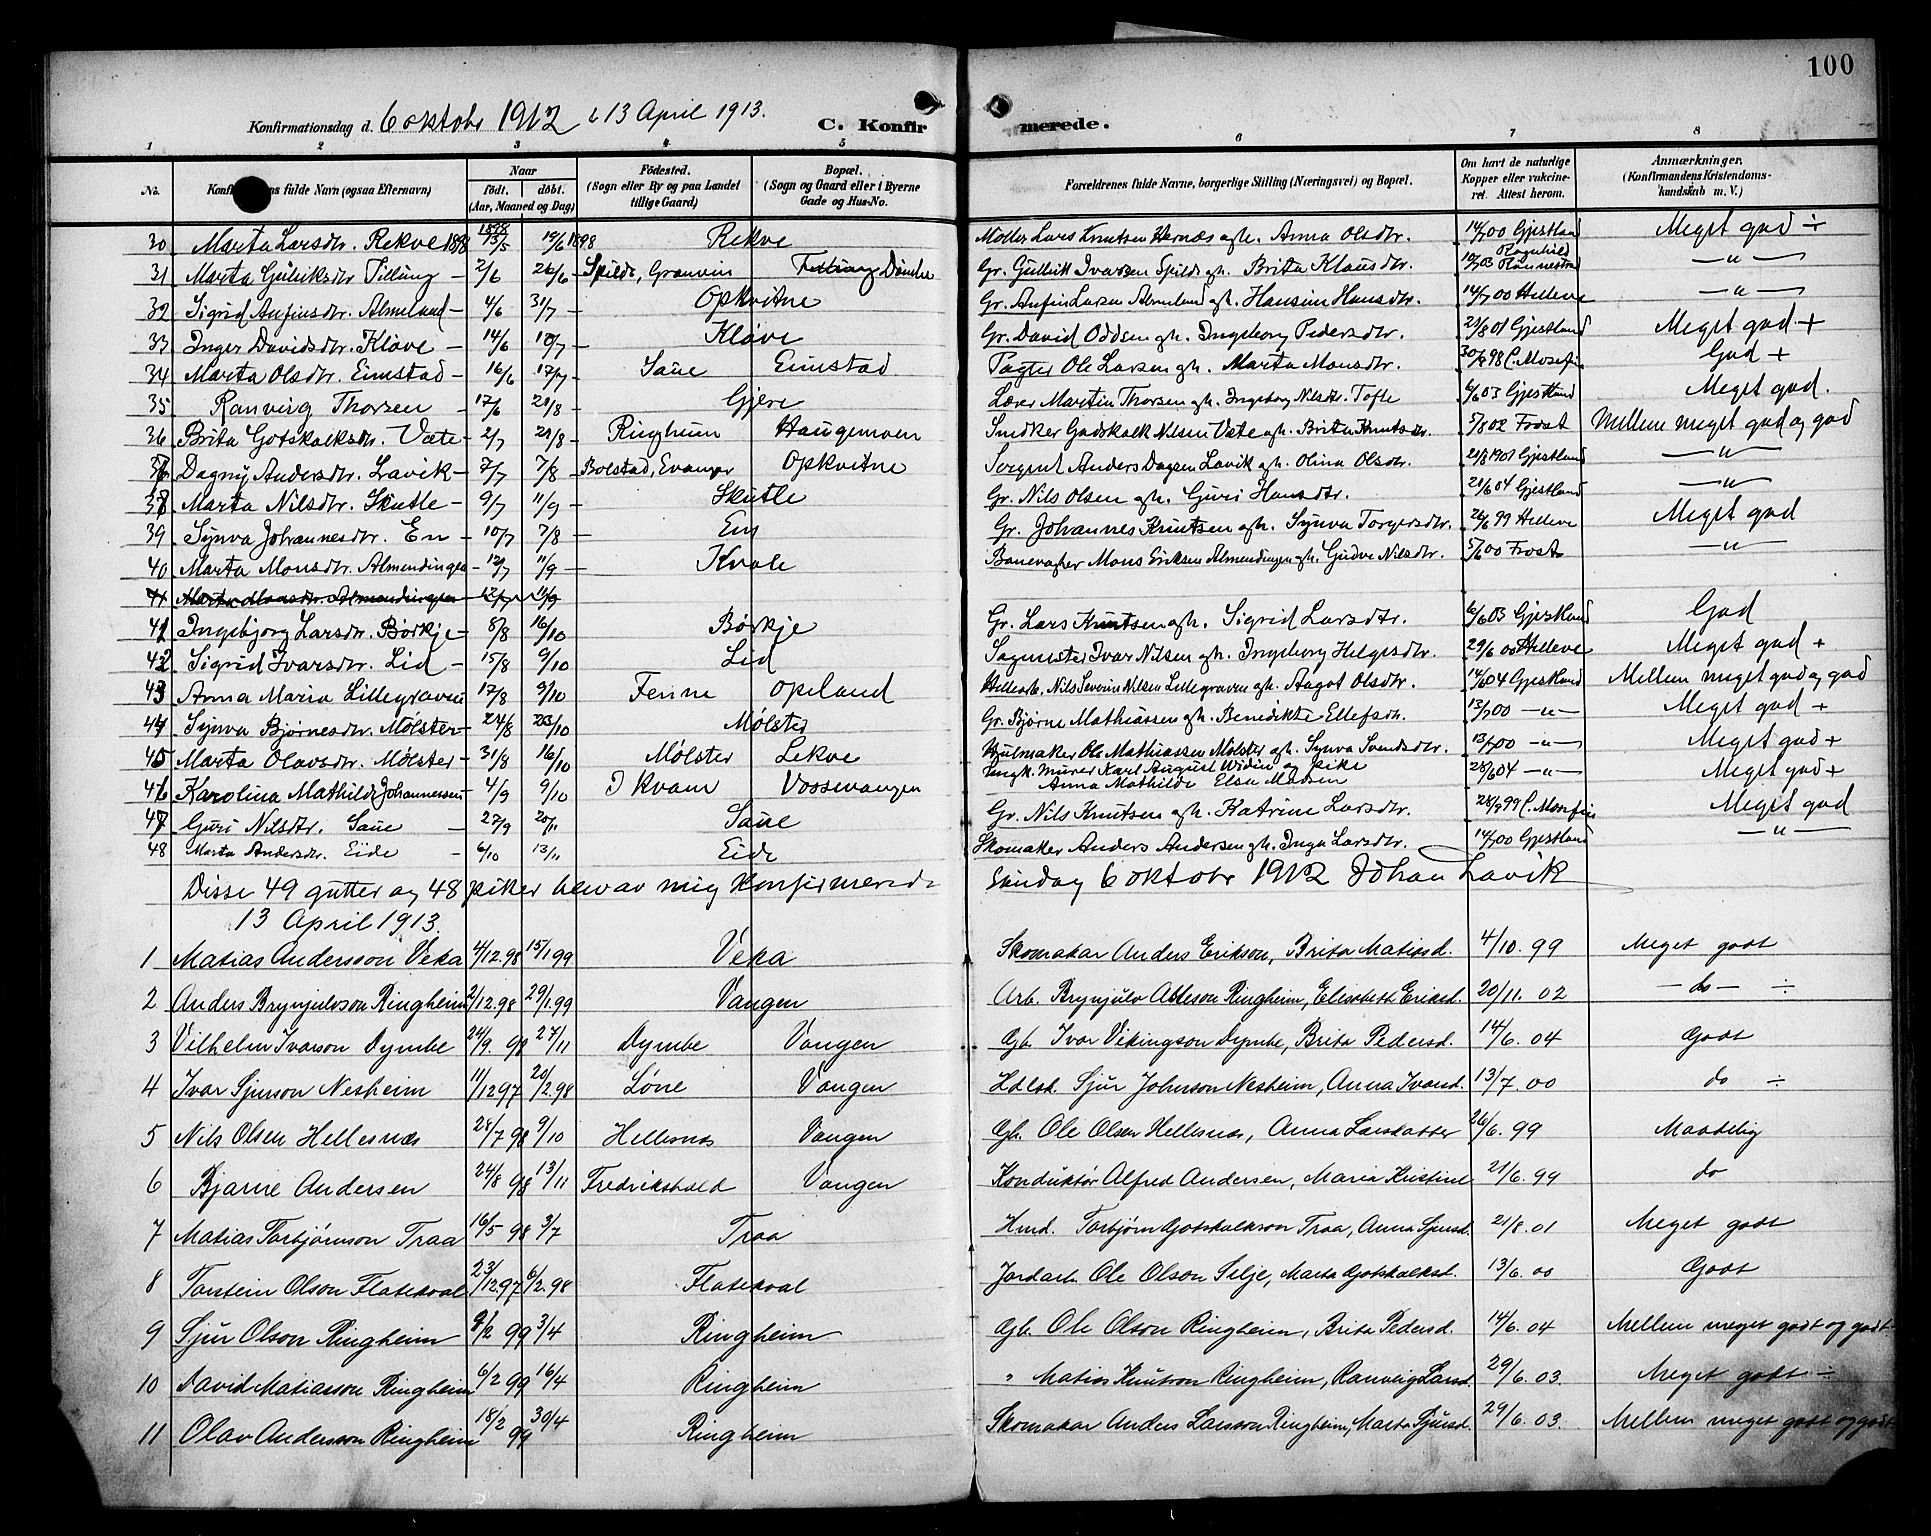 100
Konfirmationsdag d. 6 oktobr 1912 & 13 April 1913. C. Konfirmerede.
1 2 3 4 5 6 7 8
No. fulde Navn (ogsaa Efternavn) Naar født. døbt. (Aar, Maaned og Dag) Fødested. (Sogn eller By og paa Landet tillige Gaard) Bopæl. (Sogn og Gaard eller i Byerne Gade og Hus-No. Forældrenes fulde Navne, borgerlige Stilling (Næringsvei) og Bopæl. Om havt de naturlige Kopper eller vakcineret. Attest herom. Anmærkninger. (Konfirmandens Kristendomskundskab m. V.)
30 Marta Larsdtr. Rekve 1898 13/5 19/6 1898 Rekve Møller Lars Knutsen gh. Anna Olsdtr. 14/7 00 Gjestland Meget god ÷
31 Marta Gulliksdtr Tillung – 2/6 26/6 – Spilde, Granvin Dømbe Gr. Gullik Ivarsen Spilde gh. Brita Klausdtr. 10/7 03 – " –
32 Sigrid Anfinsdtr. Almeland – 4/6 31/7 – Opkvitne Gr. Anfin Larsen Almeland gh. Hansine Hansdtr. 14/7 00 Helleve – " –
33 Inger Davidsdtr. Kløve – 14/6 10/7 – Kløve Gr. David Oddsen gh. Ingeborg Pedersdtr. 21/8 01 Gjestland Meget god +
34 Marta Olsdtr. Eimstad – 16/6 17/7 – Saue Eimstad Pagter Ole Larsen gh. Marta Monsdtr. 30/9 98 C. Mosefin God +
35 Ranveig Thorsen – 17/6 21/8 – Gjere Lærer Martin Thorsen gh. Ingeborg Nilsdtr. Tofte 6/6 03 Gjestland Meget god.
36 Brita Gotskalksdtr. Væte – 2/7 21/8 – Ringheim Haugamoen Snedker Godskalk Nilsen Væte gh. Brita Knutsdtr. 5/8 02 Frost Mellem meget god og god
37 Dagny Andersdtr. Lavik – 7/7 7/8 – Bolstad, Evanger Opkvitne Sergent Anders Dagsen Lavik gh. Olina Olsdtr. 21/8 1901 Gjestland – " –
38 Marta Nilsdtr. Skutle – 9/7 11/9 – Skutle Gr. Nils Olsen gh. Guri Hansdtr. 21/6 04 Gjestland – " –
39 Synva Johannesdtr. En – 10/7 7/8 – En Gr. Johannes Knutsen gh. Synva Torgersdtr. 26/6 99 Helleve Meget god
40 Marta Monsdtr. Almendingen – 12/7 11/9 – Kvale Banevogter Mons Eriksen Almendingen gh. Gudve Nilsdtr. 5/6 00 Frost – " –
41 Marta Monsdtr. Almendingen – 12/7 11/9
41 Ingebjorg Larsdtr. Børkje – 8/8 16/10 Børkje Gr. Lars Knutsen gh. Sigrid Larsdtr. 6/6 03 Gjestland God
42 Sigrid Ivarsdtr. Lid – 15/8 9/10 Lid Sagmester Ivar Nilsen gh. Ingeborg Helgesdtr. 29/6 00 Helleve Meget god +
43 Anna Maria Lillegraven 17/8 9/10 Fenne Opeland Nils Severin Nilsen Lillegraven gh. Aagot Olsdtr. 14/6 04 Gjestland Mellem meget god og god
44 Synva Bjørnesdtr. Mølster – 24/8 23/10 Mølster Gr. Bjørne Mathiassen gh. Benedikte Ellefsdtr. 13/7 00 – " – Meget god +
45 Marta Olavsdtr. Mølster – 31/8 16/10 Mølster Lekve Hjulmaker Ole Mathiassen Mølster gh. Synva Svendsdtr. 13/7 00 – " – Meget god +
46 Karolina Mathilde Johannessen 4/9 9/10 I Kvam Vossevangen Ungk. murer Karl August Widin og pike Anna Mathilde Elsa Madsen 28/6 04 – " – Meget god +
47 Guri Nilsdtr. Saue – 27/9 20/11 Saue Gr. Nils Knutsen gh. Katrine Larsdtr. 28/9 99 C. Mosefin Meget god
48 Marta Andersdtr. Eide – 6/10 13/11 Eide Skomaker Anders Andersen gh. Inga Larsdtr. 14/7 00 Gjestland – " –
Disse 49 gutter og 48 piker blev av mig konfirmerede Søndag 6 oktobr 1912 Johan Lavik
13 April 1913.
1 Matias Andersson Veka 4/12.98 15/1 99 Veka Skomakar Anders Erikson, Brita Matiasd. 4/10. 99 Meget godt
2 Anders Brynjulvsson Ringheim 2/12.98 29/1.99 Vangen Arb. Brynjulv Atleson Ringheim, Elisabeth Eriksd. 20/11. 02 – do – ÷
3 Vilhelm Ivarson Dymbe 24/9. 98 27/11 Dymbe Vangen Gb. Ivar Vikingson Dymbe, Brita Pedersd. 14/6. 04 Godt
4 Ivar Sjurson Nesheim 11/12 97 20/2.98 Løne Vangen Hdlsd. Sjur Johnson Nesheim, Anna Ivarsd. 13/7 00 do ÷
5 Nils Olsen Hellesnæs 28/7 98 9/10 Hellesnæs Vangen Gb. Ole Olsen Hellesnæs, Anna Larsdatter 26/6. 99 Maadelig
6 Bjarne Andersen 24/8 98 13/11 Fredrikshald Vangen Konduktør Alfred Andersen, Maria Kristine 21/6. 99 do
7 Matias Torbjørnson Traa 16/5 98 3/7 Traa Hmd. Torbjørn Gotskalkson Traa, Anna Sjursd. 21/8. 01 Meget godt
8 Torstein Olson Flatekval 23/12.97 6/2.98 Flatekval Jordarb. Ole Olson Selje, Marta Gotskalksd. 13/6. 00 Godt
9 Sjur Olson Ringheim 9/2 99 3/4 Ringheim Gb. Ole Olson Ringheim, Brita Pedersd. 14/6. 04 Mellem meget godt og godt
10 David Matiasson Ringheim 6/2 99 16/4 Ringheim " Matias Knutson Ringheim, Ranveig Larsd. 29/6. 03. Meget godt ÷
11 Olav Andersson Ringheim 18/2 99 30/4 Ringheim Skomakar Anders Larsson Ringheim, Marta Sjursd. 29/6. 03. Mellem meget godt og godt